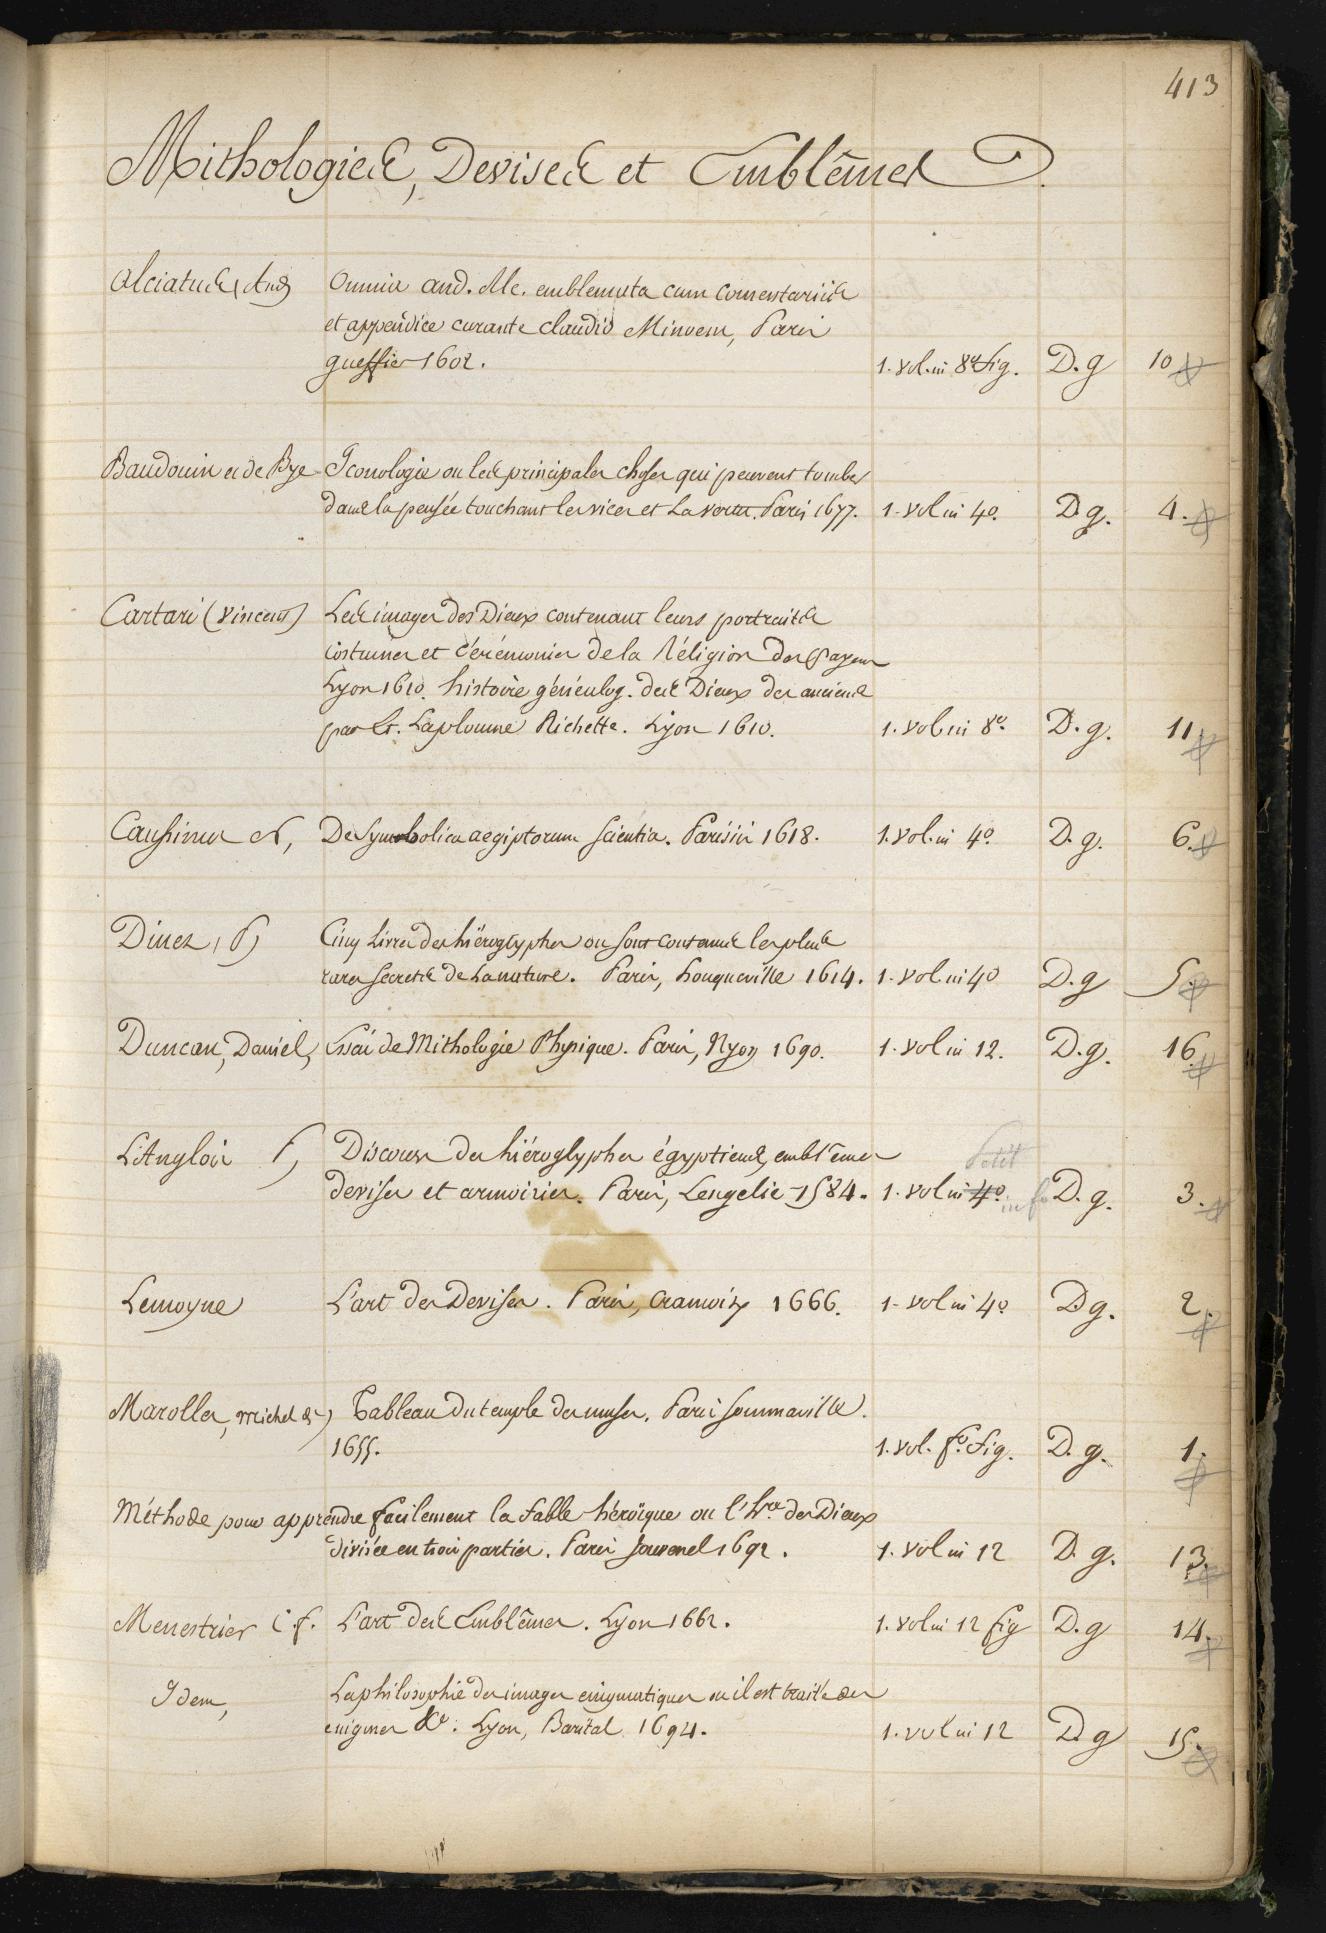 413
Mithologies, Devises et Emblêmes.
Alciatus (And)
Omnia and. Alc. emblemata cum comentariis
et appendice curante claudio Minoem, Paris
gueffier 1602.
1. vol. in 8º fig. D. g 10
Baudouin et de Bye
Iconologie ou les principales choses qui peuvent tomber
dans la pensée touchant les vices et la vertu. Paris 1677. 1. vol in 4º. D. g. 4.
Cartari (Vincent)
Les images des Dieux contenant leurs portraits
costumes et cérémonies de la Réligion des Payens
Lyon 1610. histoire généalog. des Dieux des anciens
par Laplonne Richette. Lyon 1610.
1. vol in 8º. D. g. 11
Caussinus N,
De Symbolica aegiptorum scientia. Parisiis 1618.
1. vol. in 4º. D. g. 6.
Dinet, P)
Cinq Livres des hiëroglyphes ou sont contenus les plus
rares secrets de la nature. Paris, houqueville 1614. 1. vol in 4º D. g 5.
Duncan, Daniel,
Essai de Mithologie Physique. Paris, Nyon 1690. 1. vol in 12. D. g. 16
L'Anglois P)
Discours des hiéroglyphes égyptiens, emblêmes
Petit
devises et armoiries. Paris, Lengelie 1584. 1. vol in 4º. in fº D. g. 3.
Lemoyne
L'art des Devises. Paris, Cramoisy 1666. 1. vol in 4º D. g. 2.
Marolles, Michel de)
Tableau du temple des muses. Paris Sommaville.
1655.
1. vol. fº. fig. D. g. 1.
Méthode pour apprendre facilement la fable héroïque ou l'hre. des Dieux
divisée en trois parties. Paris Jouvenel 1692. 1. vol in 12 D. g. 13.
Menestrier C. f.
L'art des Emblêmes. Lyon 1662. 1. vol in 12 fig D. g 14.
Idem,
La philosophie des images enigmatiques ou il est traité des
enigmes &c. Lyon, Baritel 1694.
1. vol in 12 D. g 15.